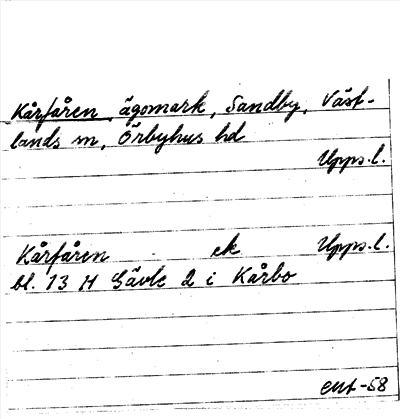 Kårfåren, ägomark, Sandby, Väst-
lands sn, Örbyhus hd
Upps.l.
Kårfåren ek Upps.l.
bl. 13 H Gävle 2 i Kårbo
ent-58